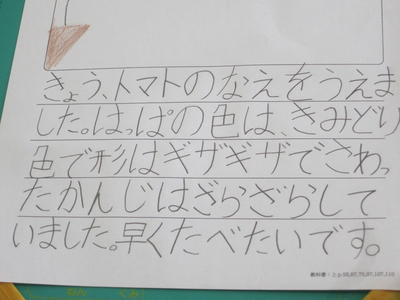 きょう、トマトのなえをうえま
した。はっぱの色は、きみどり
色で形はギザギザでさわっ
たかんじはざらざらして
いました。早くたべたいです。